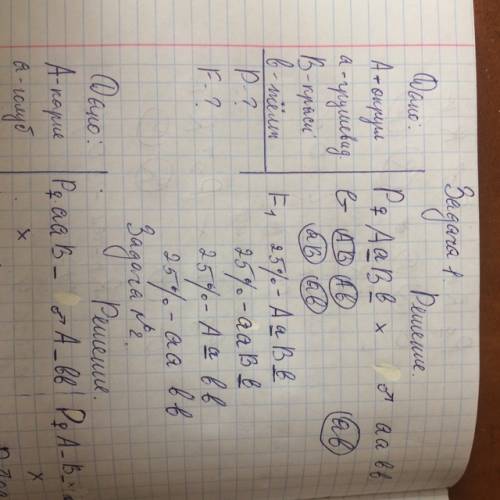 Задача 1.
Дано: Решение.
А - округл Р ♀ АаВв х ♂ аавв
а - грушевид G АВ Ав ав
В - красн аВ ав
в - жёлт F₁ 25% - АаВв
Р - ? 25% - ааВв
F - ? 25% - Аавв
25% - аавв
Задача № 2.
Дано: Решение.
А - карие Р ♀ ааВ - ♂ А - вв Р ♀ А - В -
а - голуб х х